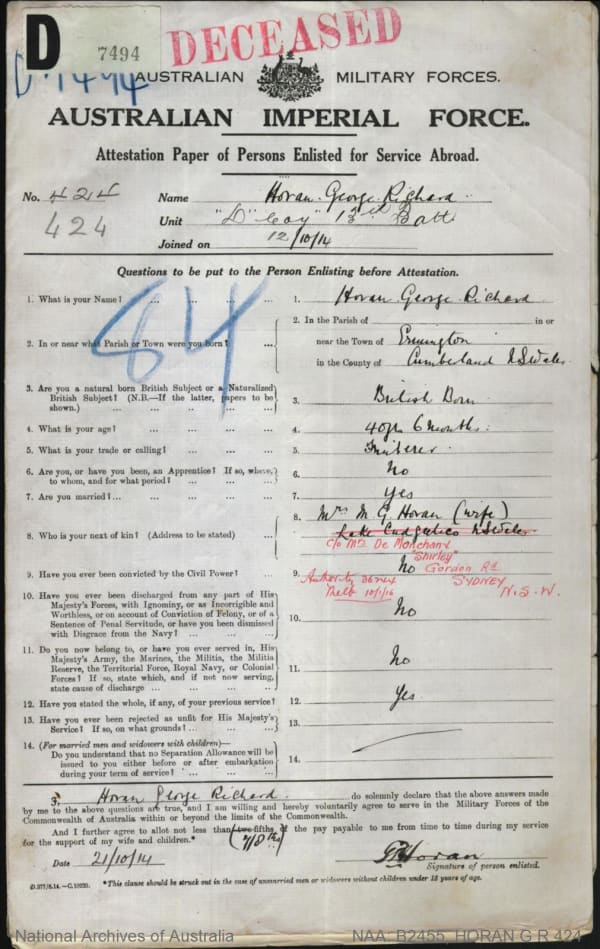 D
7494
DECEASED
D.7494
AUSTRALIAN MILITARY FORCES.
AUSTRALIAN IMPERIAL FORCE.
Attestation Paper of Persons Enlisted for Service Abroad.
No. 424 Name Horan George Richard
424 Unit "D" Coy 13th Batt
Joined on 12/10/14
Questions to be put to the Person Enlisting before Attestation.
1. What is your Name? ... ... ... ... 1. Horan George Richard
84
2. In or near what Parish or Town were you born? ... 2. In the Parish of in or
near the Town of Ermington
in the County of Cumberland N S Wales
3. Are you a natural born British Subject or a Naturalized
British Subject? (N.B.—If the latter, papers to be
shown.) ... ... ... ... 3. British Born
4. What is your age? ... ... ... ... 4. 40 yrs 6 months.
5. What is your trade or calling? ... ... ... 5.
6. Are you, or have you been, an Apprentice? If so, where,
to whom, and for what period? ... ... ... 6. No
7. Are you married? ... ... ... ... 7. Yes
8. Who is your next of kin? (Address to be stated) ... 8. Mrs M G Horan (wife)
Lake Cudgelico N S Wales
c/o Mrs De Monchand
"Shirley"
Gordon Rd
SYDNEY
N.S.W.
9. Have you ever been convicted by the Civil Power? ... 9. No
Authority
Melb 10/1/16
10. Have you ever been discharged from any part of His
Majesty's Forces, with Ignominy, or as Incorrigible and
Worthless, or on account of Conviction of Felony, or of a
Sentence of Penal Servitude, or have you been dismissed
with Disgrace from the Navy? ... ... ... 10. No
11. Do you now belong to, or have you ever served in, His
Majesty's Army, the Marines, the Militia, the Militia
Reserve, the Territorial Force, Royal Navy, or Colonial
Forces? If so, state which, and if not now serving,
state cause of discharge ... ... ... 11. No
12. Have you stated the whole, if any, of your previous service? 12. Yes.
13. Have you ever been rejected as unfit for His Majesty's
Service? If so, on what grounds? ... ... 13.
14. (For married men and widowers with children)—
Do you understand that no Separation Allowance will be
issued to you either before or after embarkation
during your term of service? ... ... ... 14.
I, Horan George Richard do solemnly declare that the above answers made
by me to the above questions are true, and I am willing and hereby voluntarily agree to serve in the Military Forces of the
Commonwealth of Australia within or beyond the limits of the Commonwealth.
And I further agree to allot not less than two-fifths of the pay payable to me from time to time during my service
for the support of my wife and children.*
Date 21/10/14 G R Horan
Signature of person enlisted.
D.377/8.14.—C.10920. *This clause should be struck out in the case of unmarried men or widowers without children under 18 years of age.
National Archives of Australia NAA: B2455, HORAN G R 424